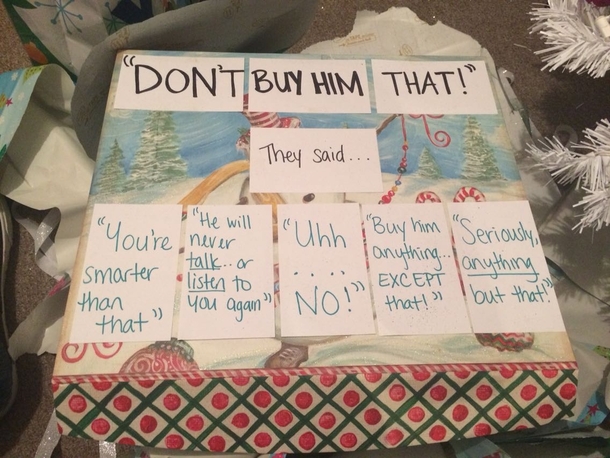 "DON'T BUY HIM THAT!"
They said...
"You're
smarter
than
that"
"He will
never
talk... or
listen to
you again"
"Uhh
....
NO!"
"Buy him
anything...
EXCEPT
that!"
"Seriously,
anything
but that!"